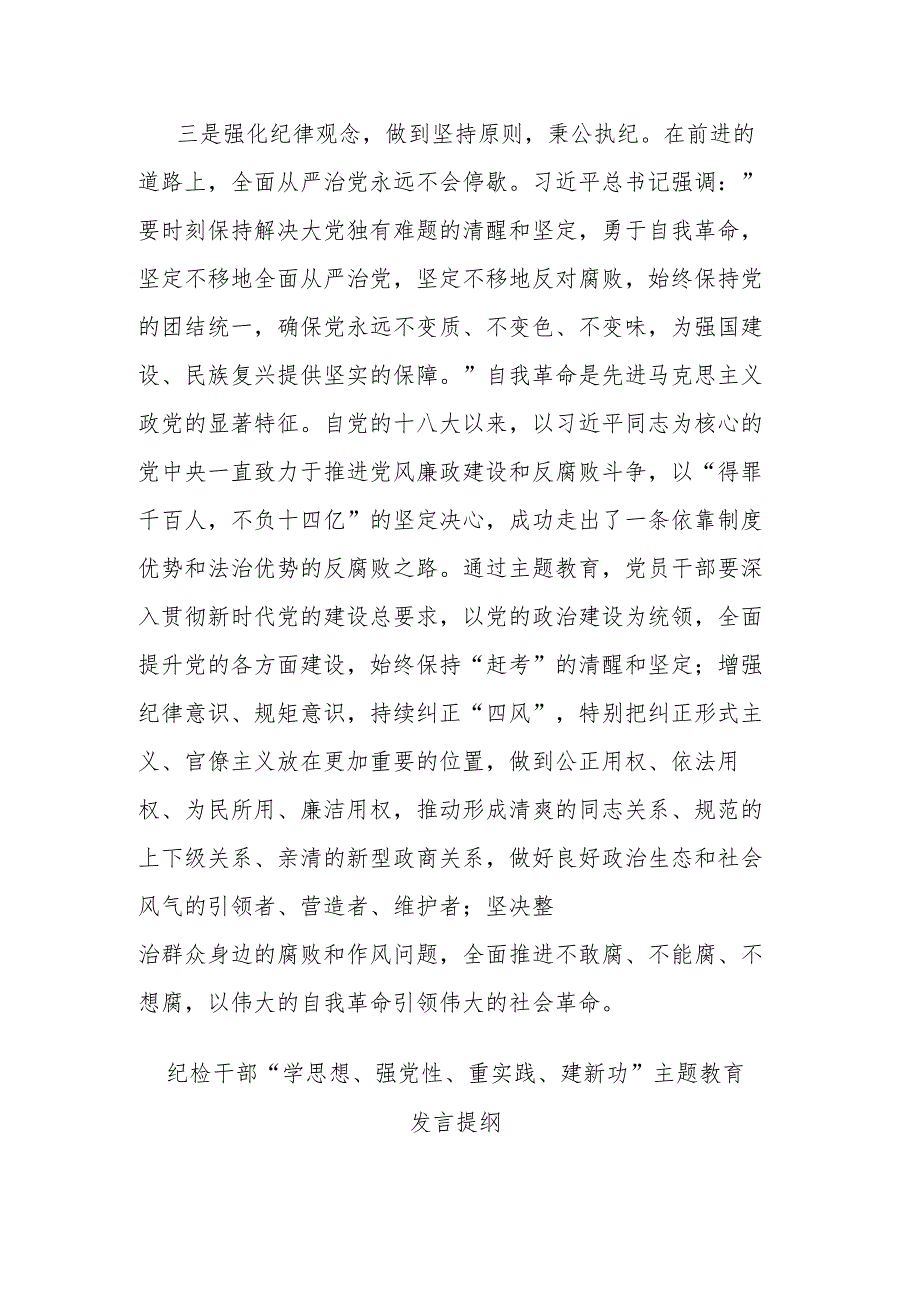 三是强化纪律观念，做到坚持原则，秉公执纪。在前进的
道路上，全面从严治党永远不会停歇。习近平总书记强调：”
要时刻保持解决大党独有难题的清醒和坚定，勇于自我革命，
坚定不移地全面从严治党，坚定不移地反对腐败，始终保持党
的团结统一，确保党永远不变质、不变色、不变味，为强国建
设、民族复兴提供坚实的保障。”自我革命是先进马克思主义
政党的显著特征。自党的十八大以来，以习近平同志为核心的
党中央一直致力于推进党风廉政建设和反腐败斗争，以“得罪
千百人，不负十四亿”的坚定决心，成功走出了一条依靠制度
优势和法治优势的反腐败之路。通过主题教育，党员干部要深
入贯彻新时代党的建设总要求，以党的政治建设为统领，全面
提升党的各方面建设，始终保持“赶考”的清醒和坚定；增强
纪律意识、规矩意识，持续纠正“四风”，特别把纠正形式主
义、官僚主义放在更加重要的位置，做到公正用权、依法用
权、为民所用、廉洁用权，推动形成清爽的同志关系、规范的
上下级关系、亲清的新型政商关系，做好良好政治生态和社会
风气的引领者、营造者、维护者；坚决整
治群众身边的腐败和作风问题，全面推进不敢腐、不能腐、不
想腐，以伟大的自我革命引领伟大的社会革命。
纪检干部“学思想、强党性、重实践、建新功”主题教育
发言提纲